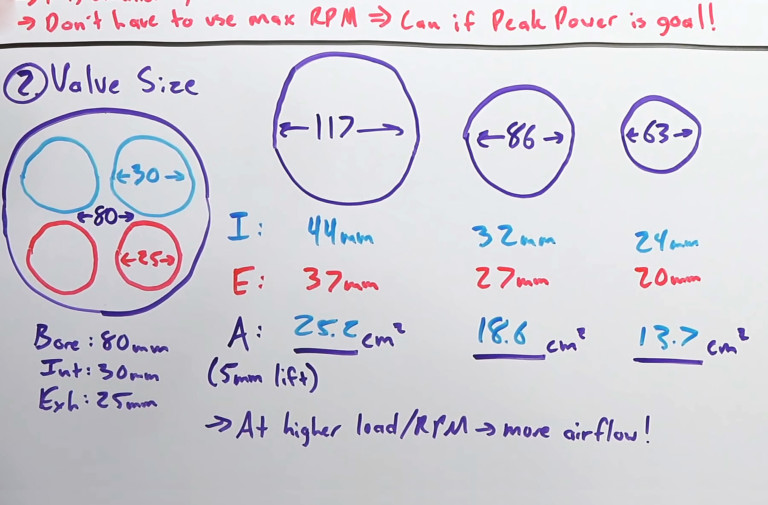 → Don't have to use max RPM ⇒ Can if Peak Power is goal!!
② Valve Size
←117→
←86→
←63→
←30→
←80→
←25→
I: 44mm 32mm 24mm
E: 37mm 27mm 20mm
A: 25.2 cm² 18.6 cm² 13.7 cm²
(5mm lift)
Bore: 80mm
Int: 30mm
Exh: 25mm
→ At higher load/RPM → more airflow!